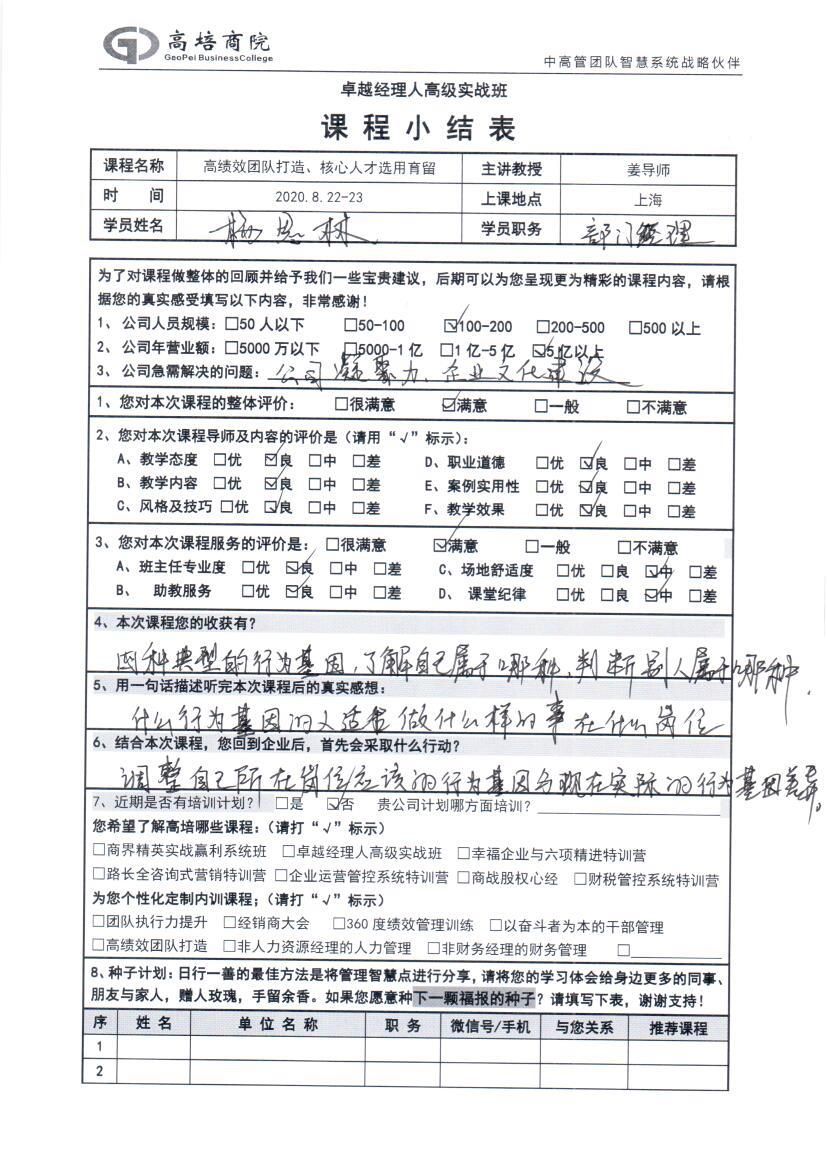 高培商院
GeoPei BusinessCollege
中高管团队智慧系统战略伙伴
卓越经理人高级实战班
课程小结表
课程名称 高绩效团队打造、核心人才选用育留 主讲教授 姜导师
时 间 2020.8.22-23 上课地点 上海
学员姓名 杨思林 学员职务 部门经理
为了对课程做整体的回顾并给予我们一些宝贵建议，后期可以为您呈现更为精彩的课程内容，请根
据您的真实感受填写以下内容，非常感谢！
1、公司人员规模：□50人以下 □50-100 ☑100-200 □200-500 □500以上
2、公司年营业额：□5000万以下 □5000-1亿 □1亿-5亿 ☑5亿以上
3、公司急需解决的问题：公司凝聚力、企业文化建设
1、您对本次课程的整体评价： □很满意 ☑满意 □一般 □不满意
2、您对本次课程导师及内容的评价是（请用“√”标示）：
A、教学态度 □优 ☑良 □中 □差 D、职业道德 □优 ☑良 □中 □差
B、教学内容 □优 ☑良 □中 □差 E、案例实用性 □优 ☑良 □中 □差
C、风格及技巧 □优 ☑良 □中 □差 F、教学效果 □优 ☑良 □中 □差
3、您对本次课程服务的评价是： □很满意 ☑满意 □一般 □不满意
A、班主任专业度 □优 ☑良 □中 □差 C、场地舒适度 □优 □良 ☑中 □差
B、 助教服务 □优 ☑良 □中 □差 D、 课堂纪律 □优 □良 ☑中 □差
4、本次课程您的收获有？
四种典型的行为基因，了解自己属于哪种、判断别人属于哪种．
5、用一句话描述听完本次课程后的真实感想：
什么行为基因的人适合做什么样的事在什么岗位
6、结合本次课程，您回到企业后，首先会采取什么行动？
调整自己所在岗位应该的行为基因与现在实际的行为基因差异。
7、近期是否有培训计划？□是 ☑否 贵公司计划哪方面培训？
您希望了解高培哪些课程；（请打“√”标示）
□商界精英实战赢利系统班 □卓越经理人高级实战班 □幸福企业与六项精进特训营
□路长全咨询式营销特训营 □企业运营管控系统特训营 □商战股权心经 □财税管控系统特训营
为您个性化定制内训课程；（请打“√”标示）
□团队执行力提升 □经销商大会 □360度绩效管理训练 □以奋斗者为本的干部管理
□高绩效团队打造 □非人力资源经理的人力管理 □非财务经理的财务管理 □
8、种子计划：日行一善的最佳方法是将管理智慧点进行分享，请将您的学习体会给身边更多的同事、
朋友与家人，赠人玫瑰，手留余香。如果您愿意种下一颗福报的种子？请填写下表，谢谢支持！
序 姓名 单位名称 职务 微信号/手机 与您关系 推荐课程
1
2